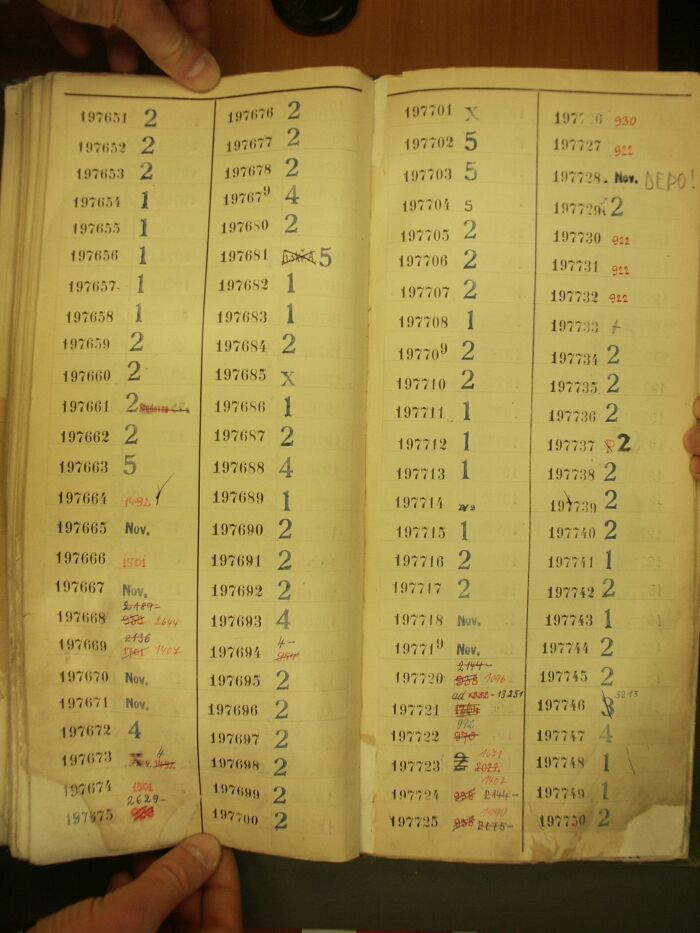 197651 2
197652 2
197653 2
197654 1
197655 1
197656 1
197657- 1
197658 1
197659 2
197660 2
197661 2
197662 2
197663 5
197664 1482
197665 Nov.
197666 1501
197667 Nov.
197668 2189- 2644
197669 2136 1407
197670 Nov.
197671 Nov.
197672 4
197673 X 4
197674 1501
197675 2629-
197676 2
197677 2
197678 2
197679 4
197680 2
197681 5
197682 1
197683 1
197684 2
197685 X
197686 1
197687 2
197688 4
197689 1
197690 2
197691 2
197692 2
197693 4
197694 4-
197695 2
197696 2
197697 2
197698 2
197699 2
197700 2
197701 X
197702 5
197703 5
197704 5
197705 2
197706 2
197707 2
197708 1
197709 2
197710 2
197711 1
197712 1
197713 1
197714
197715 1
197716 2
197717 2
197718 Nov.
197719 Nov.
197720 2144- 958 1096
197721 ad 1352-13251
197722 992 970
197723 2 1671 2022.
197724 958 1407 2144-
197725 958 2675-
930
197727 922
197728. Nov. DEPO!
197729 2
197730 922
197731 922
197732 922
197733 +
197734 2
197735 2
197736 2
197737 8 2
197738 2
197739 2
197740 2
197741 1
197742 2
197743 1
197744 2
197745 2
197746 8 3213
197747 4
197748 1
197749 1
197750 2